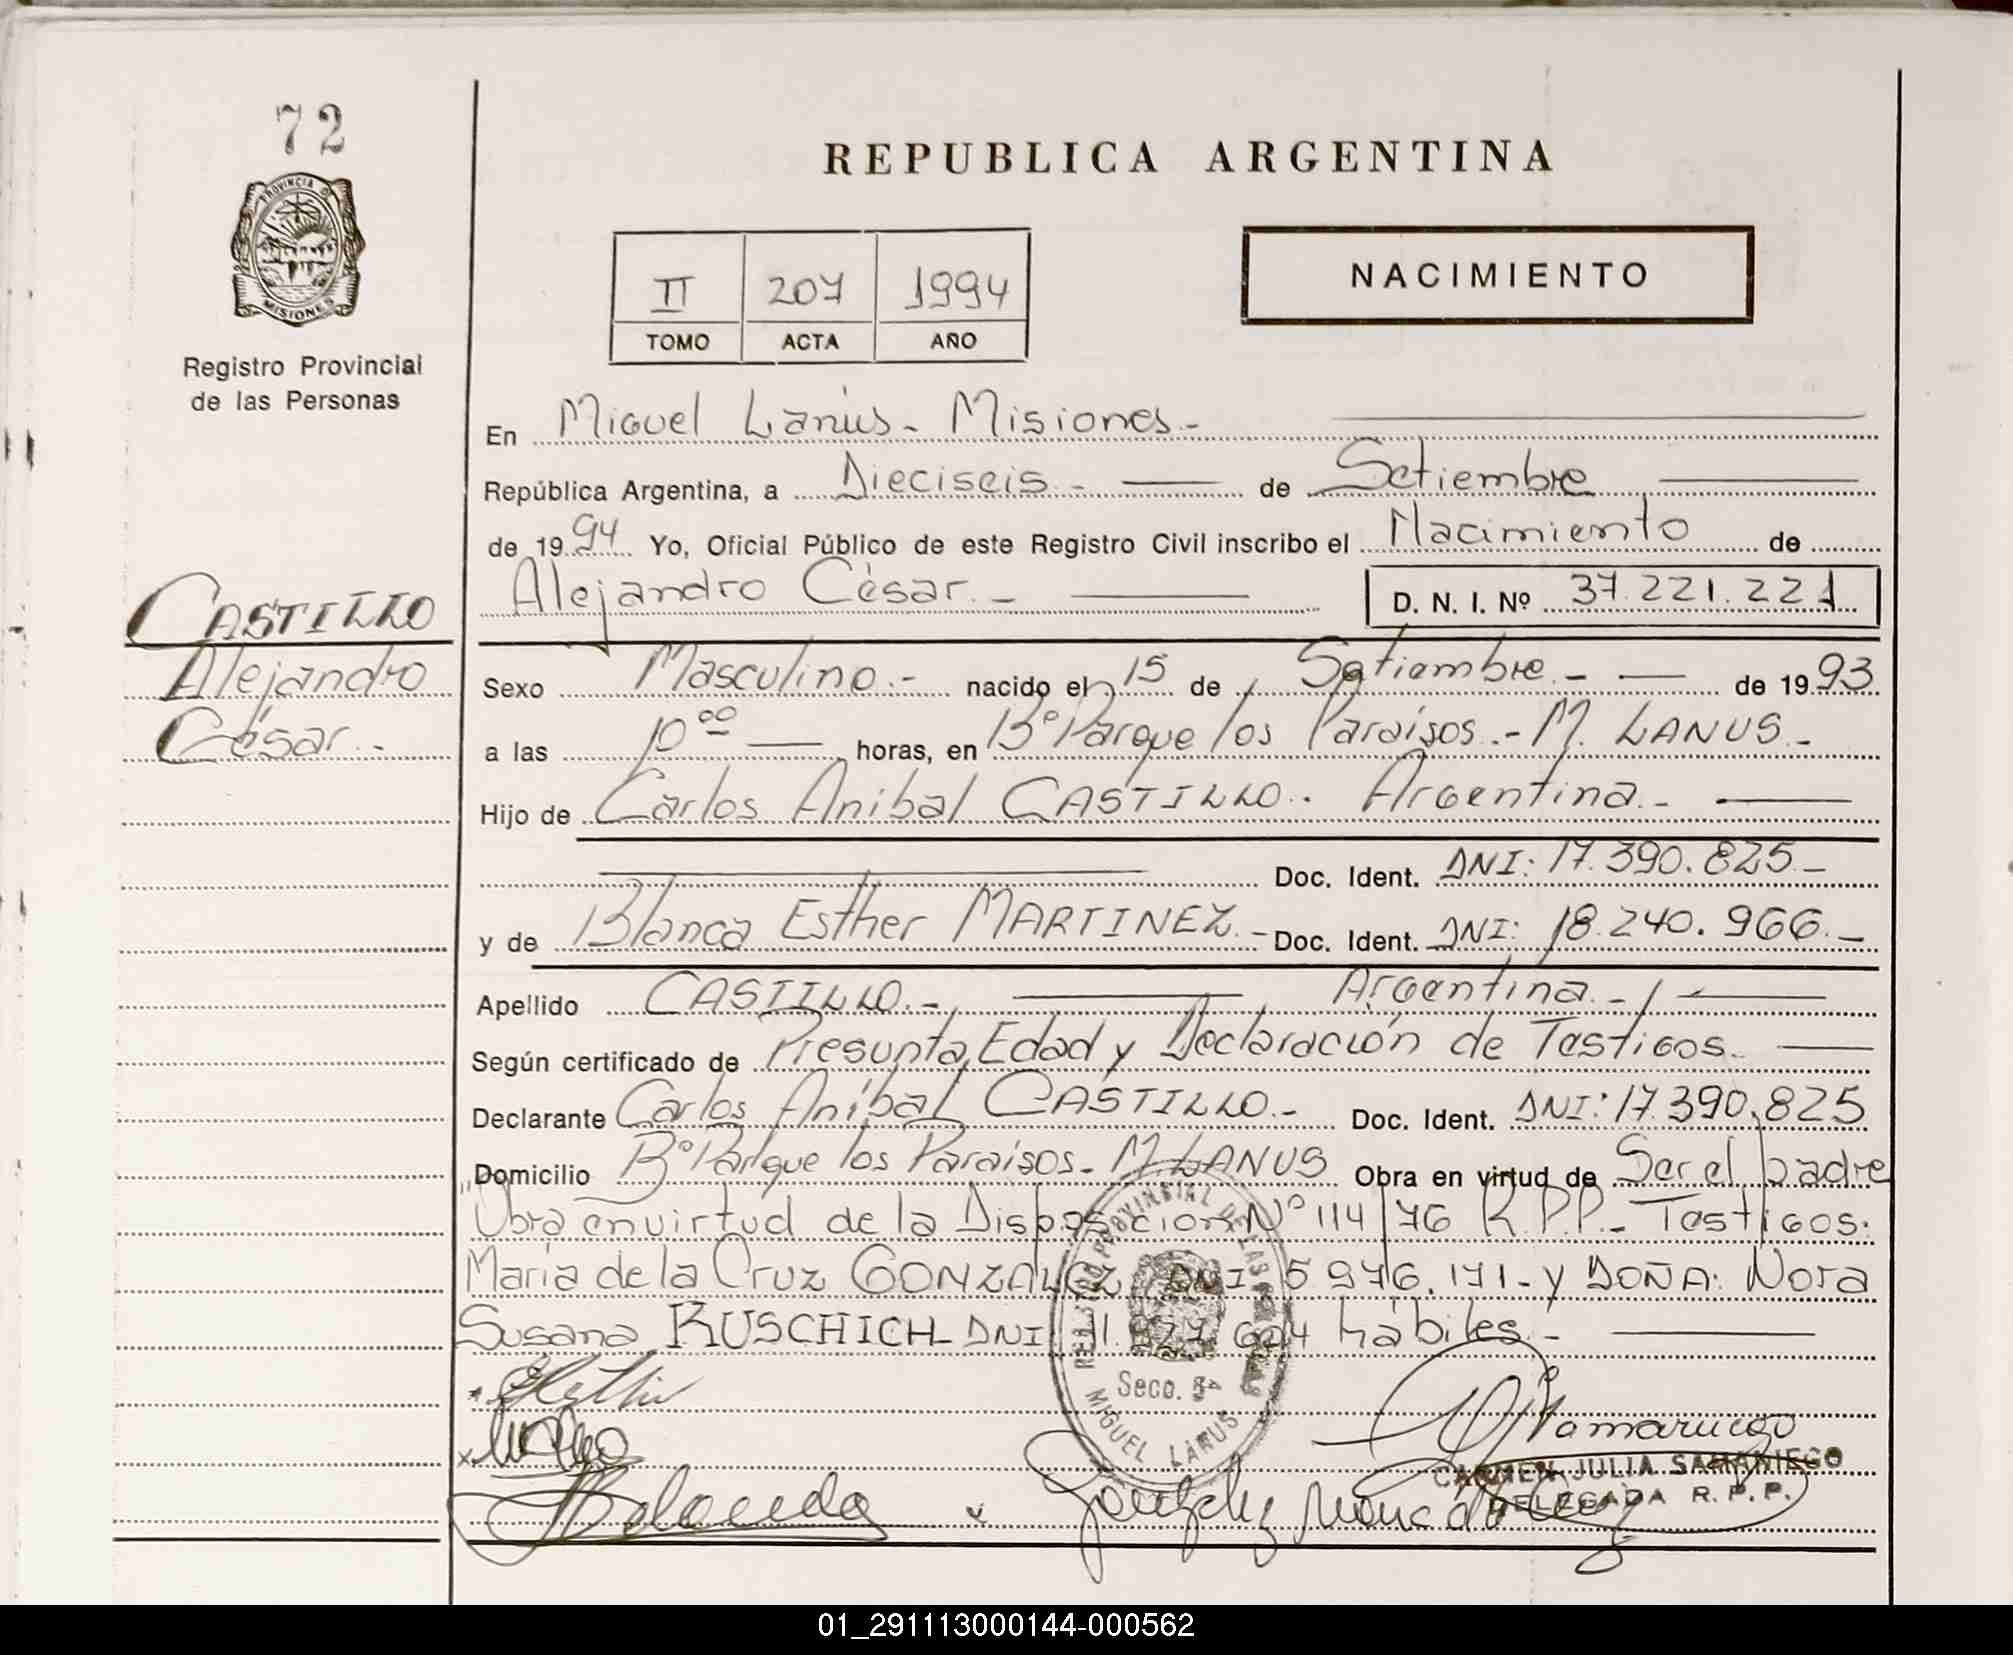 72
PROVINCIA DE
MISIONES
Registro Provincial
de las Personas
REPUBLICA ARGENTINA
II 207 1994
TOMO ACTA AÑO
NACIMIENTO
En Miguel Lanús.- Misiones.-
República Argentina, a Dieciseis.- de Setiembre
de 1994 Yo, Oficial Público de este Registro Civil inscribo el Nacimiento de
Alejandro César.- D. N. I. Nº 37.221.221
CASTILLO
Alejandro
César.-
Sexo Masculino.- nacido el 15 de Setiembre.- de 1993
a las 10 00 horas, en Bº Parque los Paraisos.- M. LANUS.-
Hijo de Carlos Anibal CASTILLO.- Argentina.-
Doc. Ident. DNI: 17.390.825.-
y de Blanca Esther MARTINEZ.- Doc. Ident. DNI: 18.240.966.-
Apellido CASTILLO.- Argentina.-
Según certificado de Presunta Edad y Declaración de Testigos.-
Declarante Carlos Anibal CASTILLO.- Doc. Ident. DNI: 17.390.825
Domicilio Bº Parque los Paraisos.- M LANUS Obra en virtud de Ser el padre
"Obra en virtud de la Disposición Nº 114/76 R.P.P.- Testigos:
María de la Cruz GONZALEZ DNI 5.976.171- y DOÑA: Nora
Susana RUSCHICH- DNI 11. 604 hábiles.-
REGISTRO PROVINCIAL DE LAS
Secc. 5ª
MIGUEL LANUS
CARMEN JULIA SAMANIEGO
DELEGADA R. P. P.
01_291113000144-000562